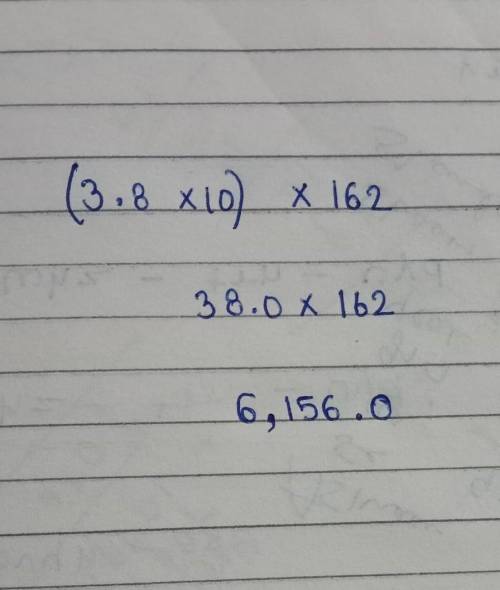 (3.8 ×10) × 162
38.0 × 162
6,156.0